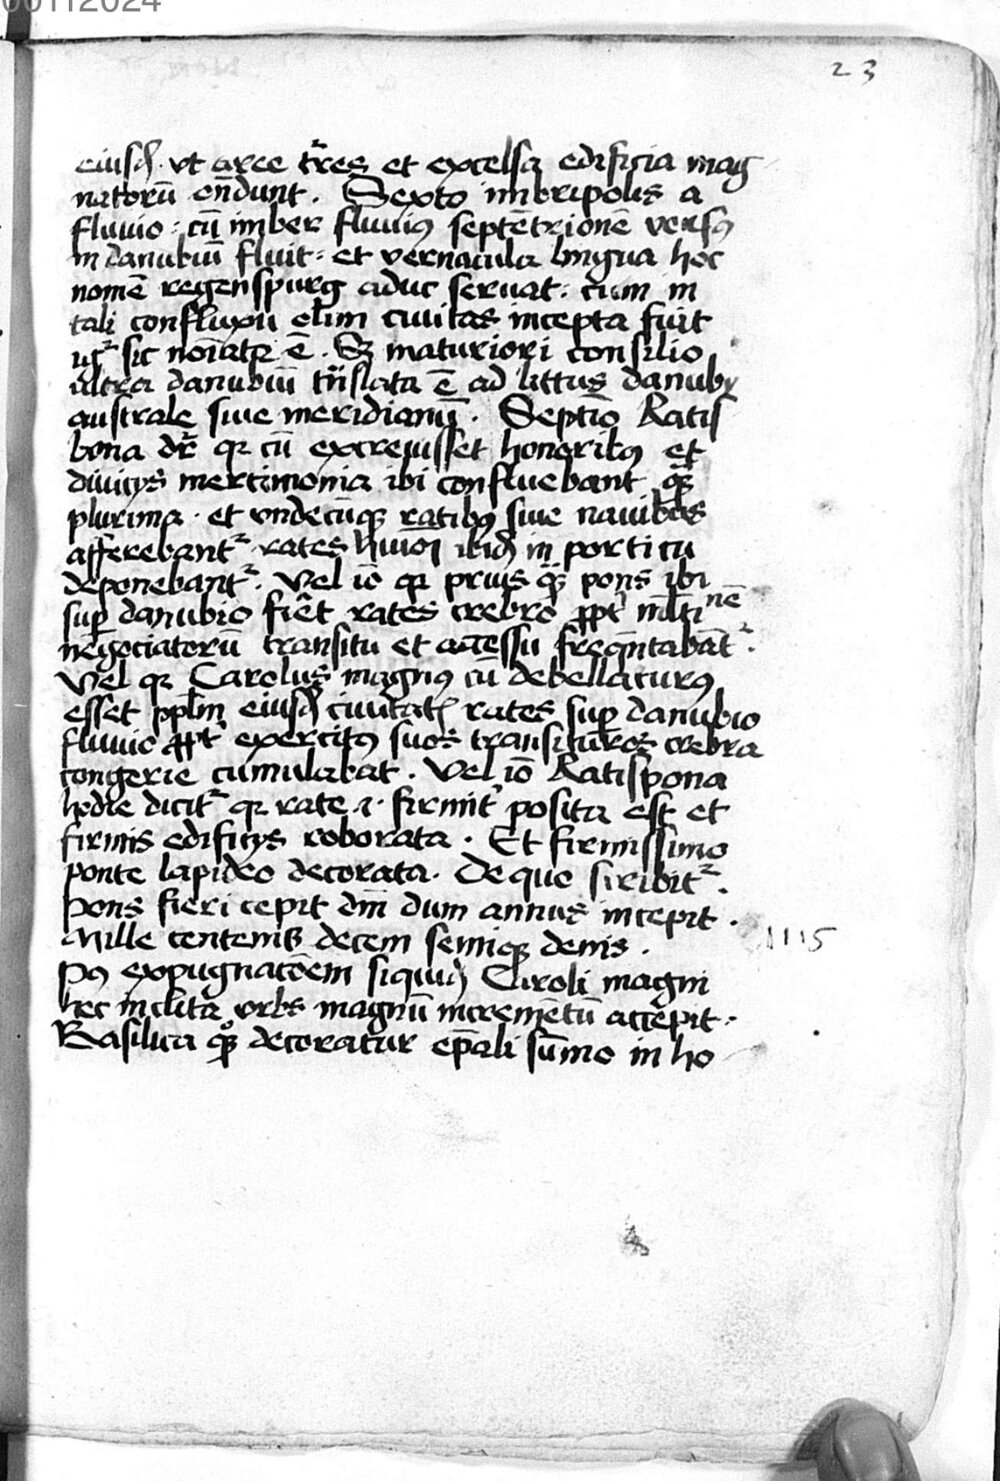 00112024
23
eiusd. vt arce tr̄es et excelsa edificia mag
natorū on̄dunt. Sexto imbripolis a
fluuio: cū imber fluuiꝰ septētrionē versꝰ
in danubiū fluit: et vernacula lingua hec
nomē regenspurg aduc seruat: cum in
tali confluxu olim ciuitas incepta fuit
sic noīat᷑ ē. Sꝫ maturiori consilio
ultra danubiū trāslata ē ad littus danuby
australe siue meridianū. Septīo Ratis
bona dr̄ qꝛ cū excreuisset honoribꝰ et
diuicys mercimonia ibi confluebant qꝫ
plurima. et vndecūqꝫ ratibꝰ siue nauibus
afferebant᷑. rates huiꝰ ibid in porticu
deponebant᷑. Vel iō qꝛ prius qꝫ pons ibi
suꝑ danubio fiēt rates crebro ꝓpt̄ multi
nē
negociatorū transitu et accessu freqn̄tabāt᷑.
Vel qꝛ Carolus magnꝰ cū debellaturꝰ
esset pplm̄ eiusd ciuitat̄ rates suꝑ danubio
fluuio ꝓpt̄ exercitꝰ suos transituros crebra
congerie cumulabat. Vel iō Ratispona
hodie dicit᷑ qꝛ rate .i. firmit̄ posita est et
firmis edificys roborata. Et firmissimo
ponte lapideo decorata. De quo scribit᷑.
Pons fieri cepit dm̄ dum annus incepit.
Mille centenis decem semiqꝫ denis.
1115
Pꝰ expugnacōem siquid Caroli magni
hec inclita vrbs magnū incremētū accepit.
Basilica qꝫ decoratur ep̄ali sūmo in ho